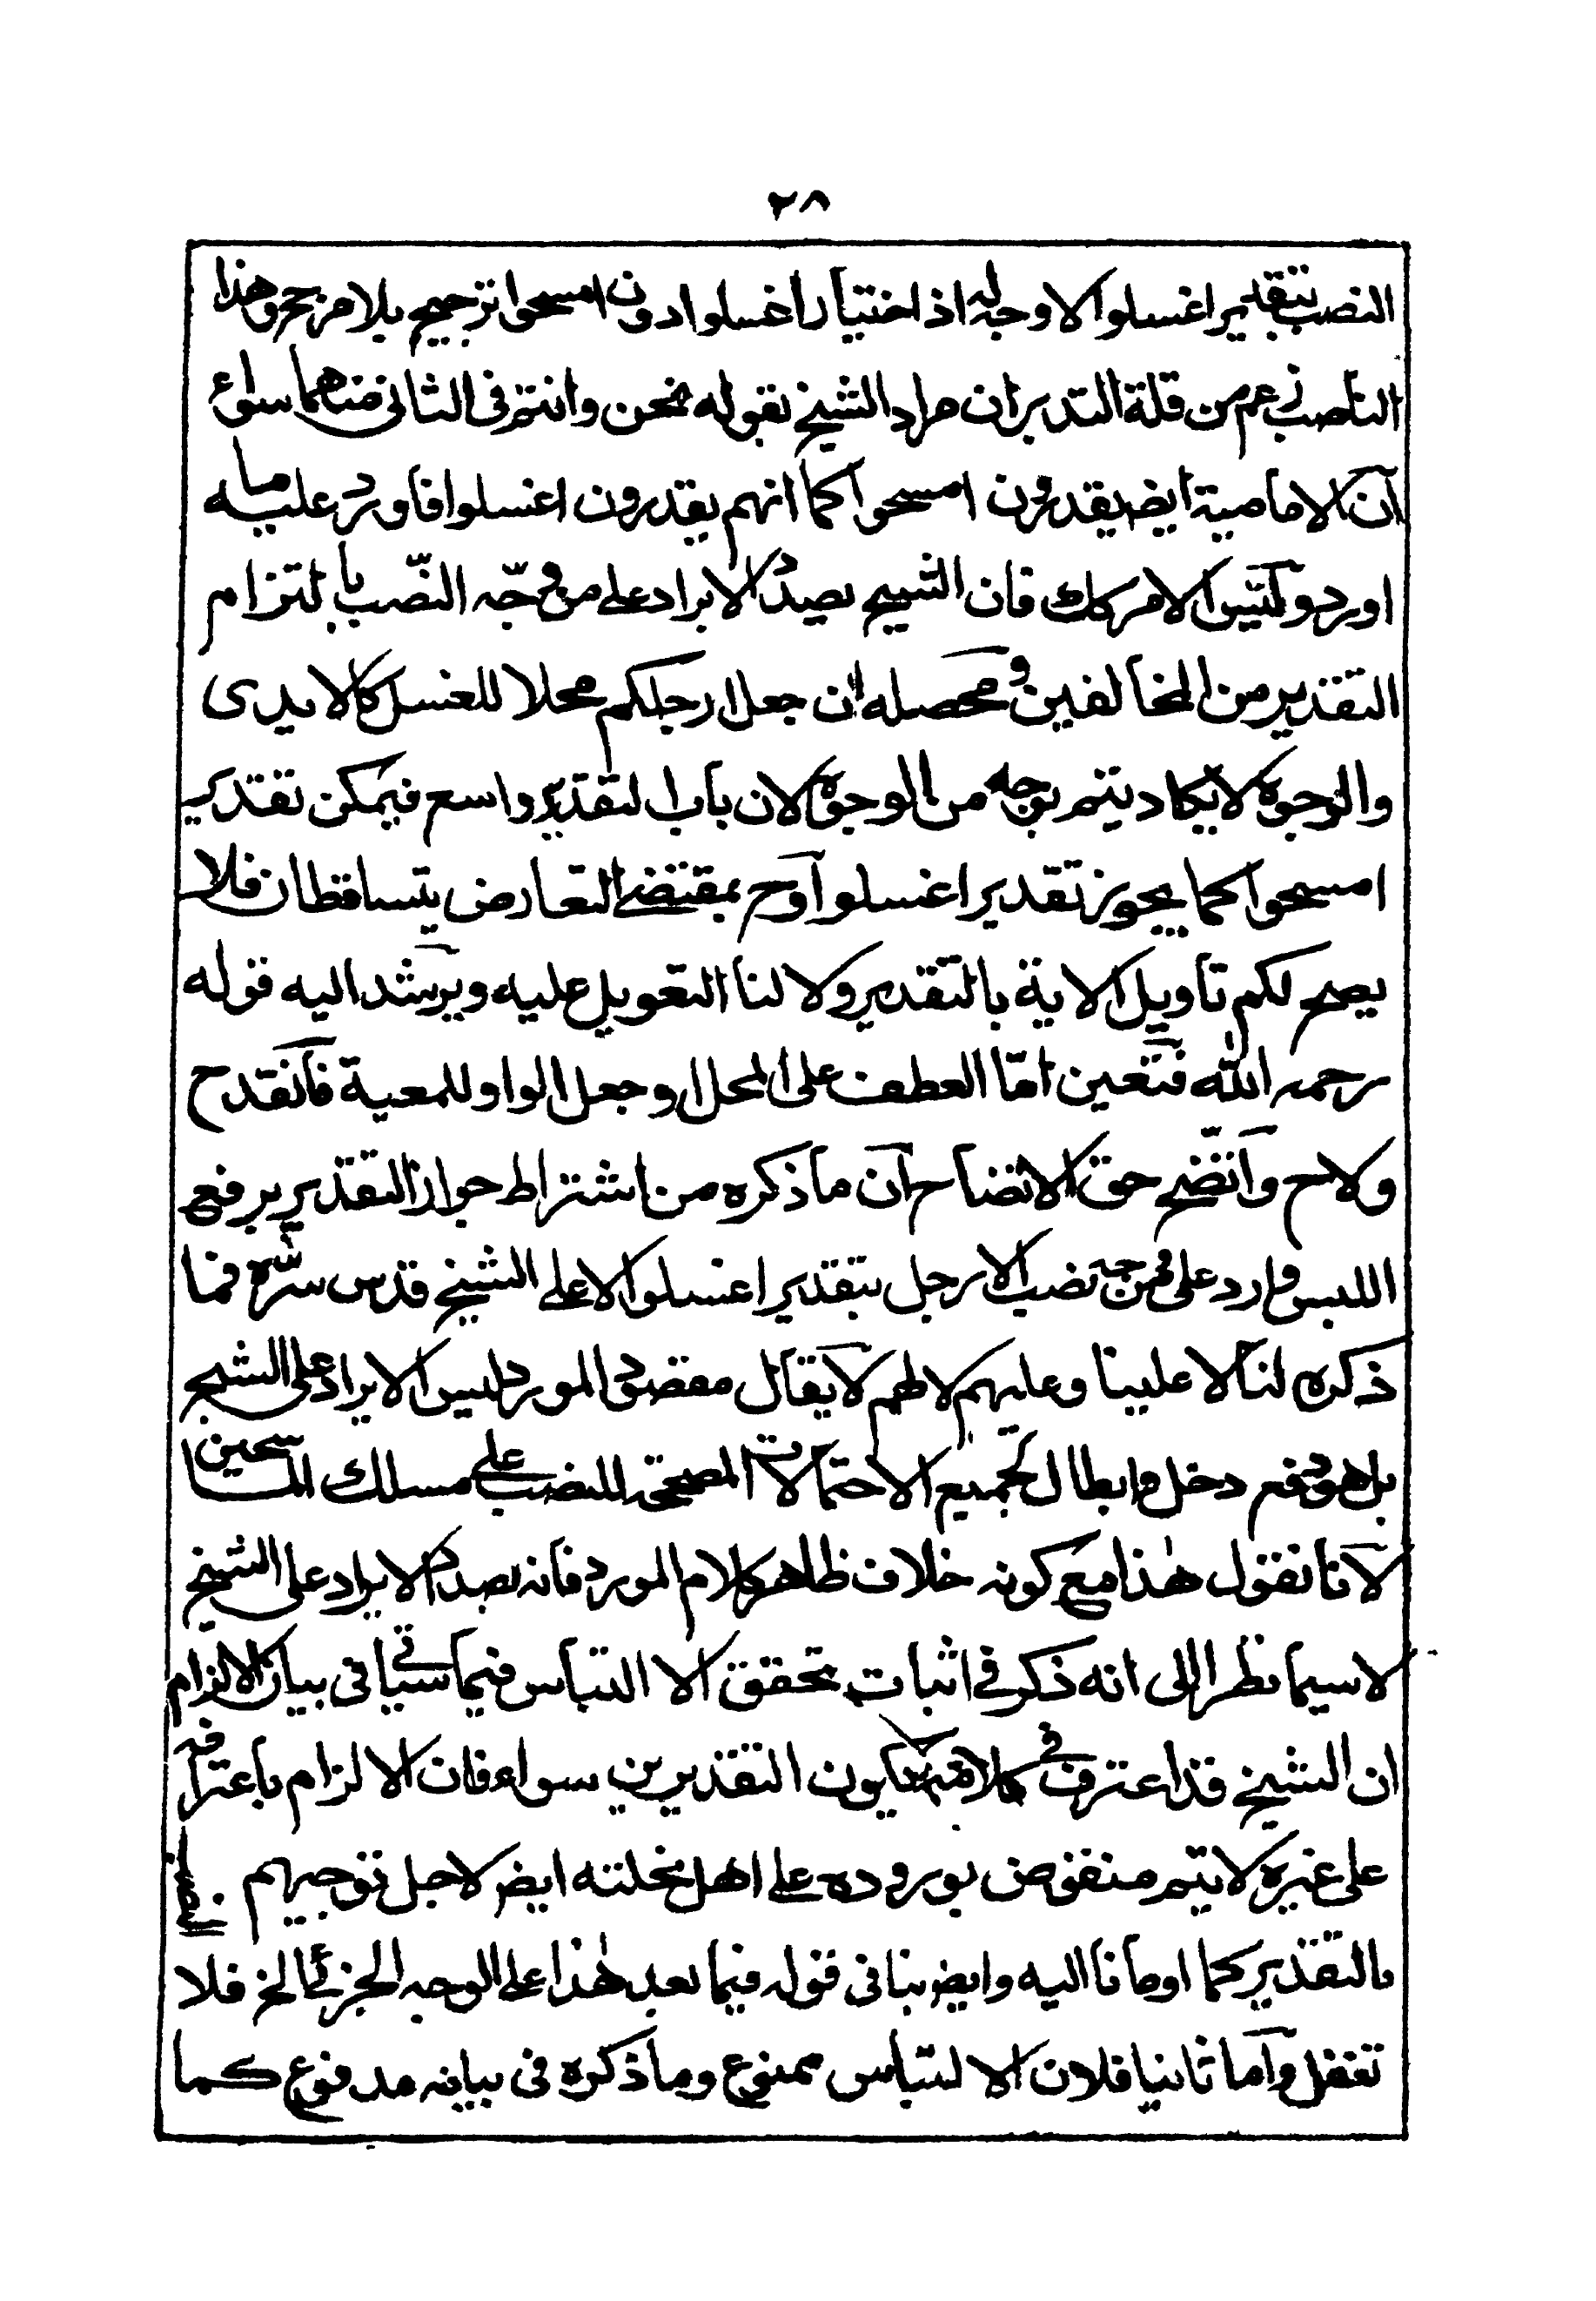 ٢٨
النصب بتقدير اغسلوا لا وجه له اذ اختيار اغسلوا دون امسحوا ترجيح بلا مرجح وهذا
الناصب زعم من قلة التدبر ان مراد الشيخ بقوله فنحن وانتم فى الثانى منهما سواء
ان الامامية ايض يقدرون امسحوا كما انهم يقدرون اغسلوا فاورد عليه ما
اورد وليس الامر كك فان الشيخ بصدد الايراد على من وجّه النّصب بالتزام
التقدير من المخالفين ومحصله ان جعل ارجلكم محلا للغسل كالايدى
والوجوه لا يكاد يتم بوجه من الوجوه لان باب التقدير واسع فيمكن تقدير
امسحوا كما يجوز تقدير اغسلوا وح بمقتضى التعارض يتساقطان فلا
يصح لكم تاويل الاية بالتقدير ولا لنا التعويل عليه ويرشد اليه قوله
رحمه الله فتعين امّا العطف على المحل او جعل الواو للمعية فانقدح
ولاح واتّضح حق الاتضاح ان ما ذكره من اشتراط جواز التقدير برفع
اللبس وارد على من وجه نصب الارجل بتقدير اغسلوا لا على الشيخ قدس سرّه فما
ذكره لنا لا علينا وعليهم لا لهم لا يقال مقصود المورد ليس الايراد على الشيخ
بل هو دفع دخل وابطال لجميع الاحتمالات المصححة للنصب على مسلك الماسحين
لانا نقول هذا مع كونه خلاف ظاهر كلام المورد فانه بصدد الايراد على الشيخ
لا سيما نظرا الى انه ذكر فى اثبات تحقق الالتباس فيما سياتى فى بيان الالزام
ان الشيخ قد اعترف فى كلامه بكون التقديرين سواء فان الالزام باعترافه
على غيره لا يتم منقوض بوروده على اهل نحلته ايض لاجل توجيههم
بالتقدير كما اومانا اليه وايض ينافى قوله فيما بعد هذا على الوجه الجزئى الخ فلا
تغفل واما ثانيا فلان الالتباس ممنوع وما ذكره فى بيانه مدفوع كما